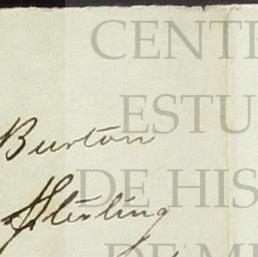 CENT
ESTU
Burton
DE HIS
Sterling
DE M